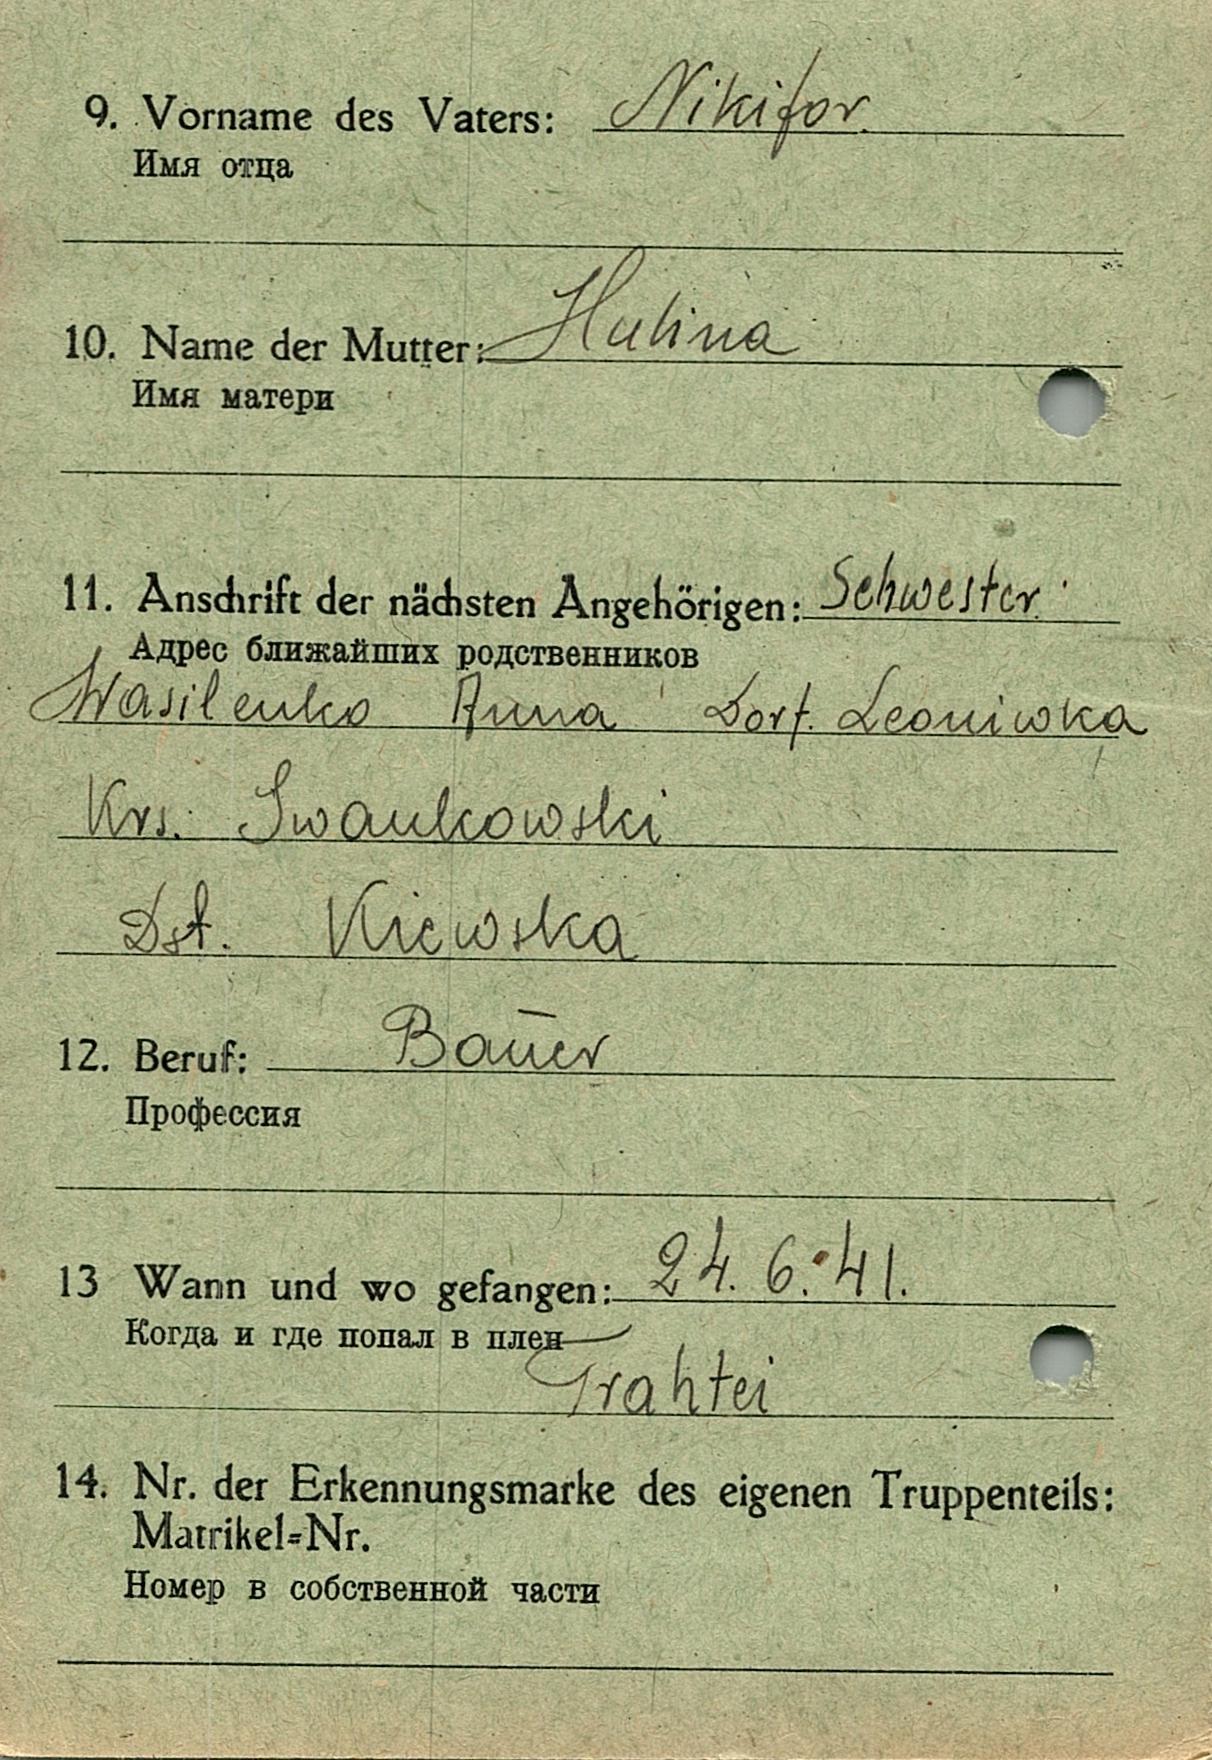 9. Vorname des Vaters: Nikifor.
Имя отца
10. Name der Mutter: Halina
Имя матери
11. Anschrift der nächsten Angehörigen: Schwester
Адрес ближайших родственников
Wasilenko Anna Dorf. Leoniwka
Krs. Iwankowski
Dst. Kiewska
12. Beruf: Bauer
Профессия
13 Wann und wo gefangen: 24. 6. 41.
Когда и где попал в плен
Grahtei
14. Nr. der Erkennungsmarke des eigenen Truppenteils:
Matrikel=Nr.
Номер в собственной части